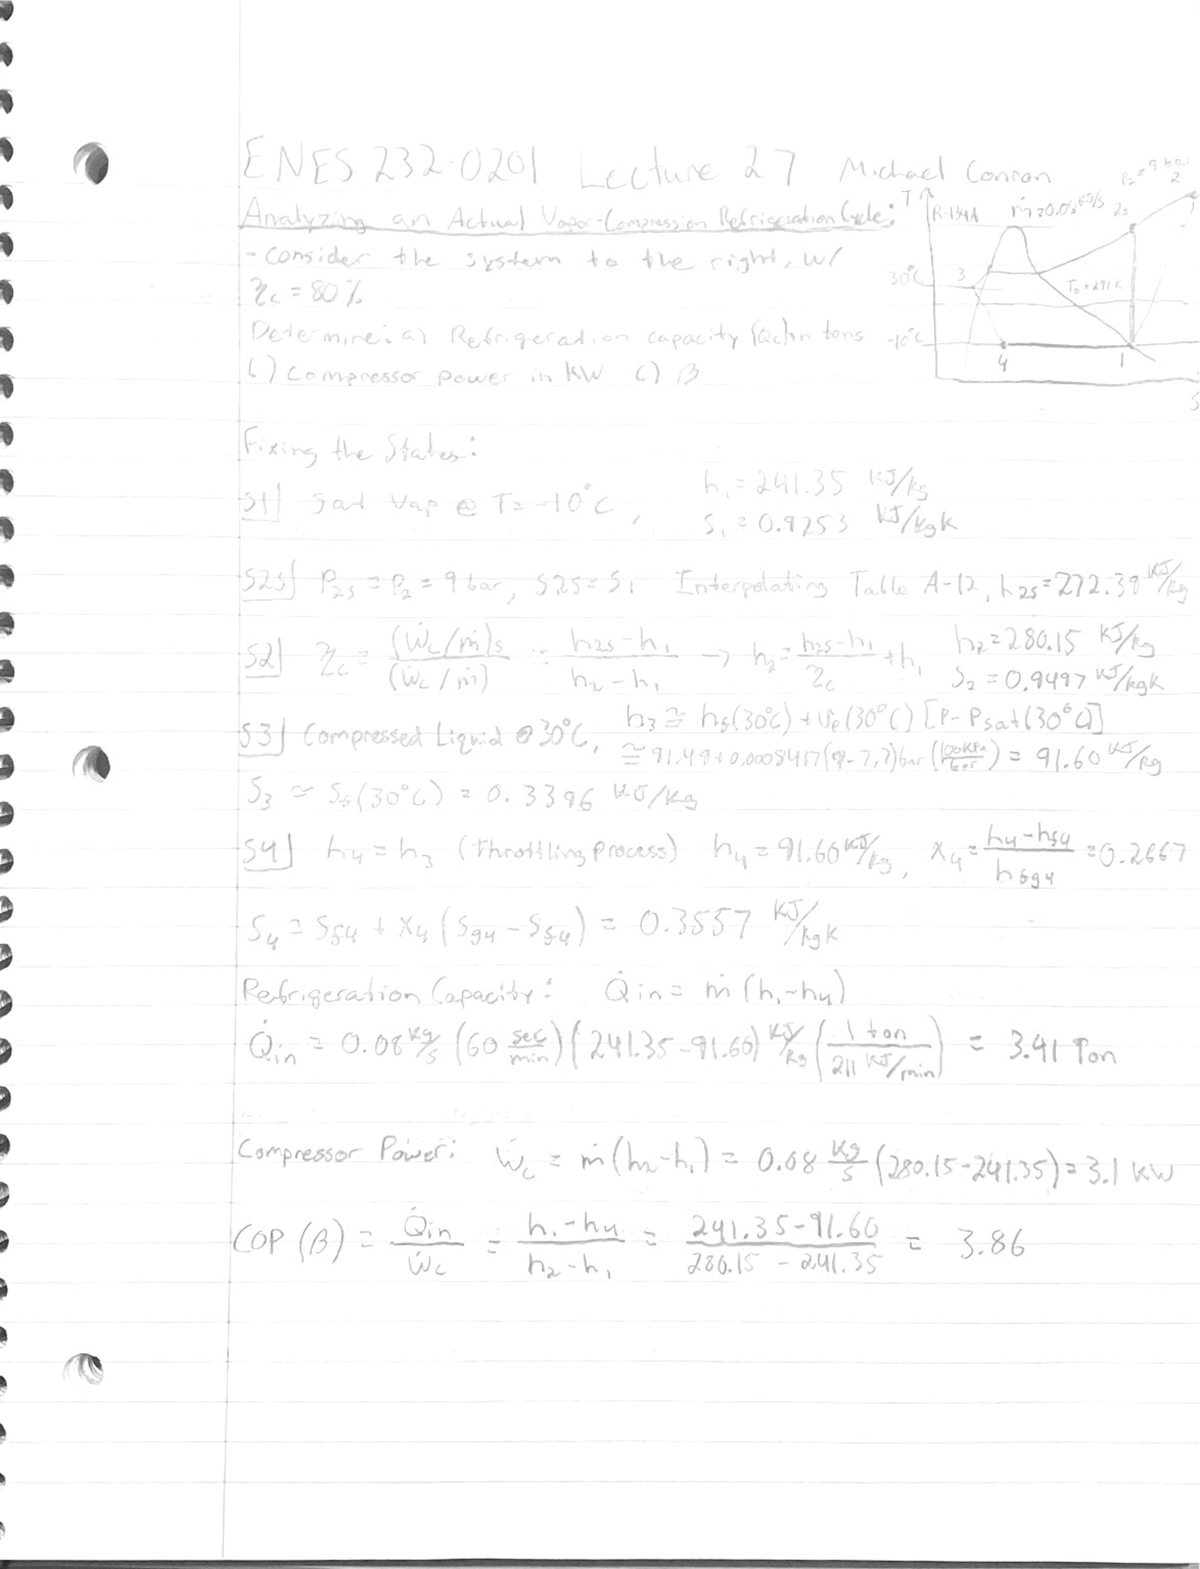 ENES 232-0201 Lecture 27 Michael Conron
Analyzing an Actual Vapor-Compression Refrigeration Cycle:
- Consider the system to the right, w/
ηc = 80%
Determine: a) Refrigeration capacity (Qc) in tons
b) Compressor power in kW c) β
T R-134A ṁ=0.08 kg/s P₂=9 bar
2s 2
30°C 3 T₀=291 K
-10°C 4 1
S
Fixing the States:
S1| Sat Vap @ T=-10°C, h₁=241.35 kJ/kg
S₁=0.9253 kJ/kgK
S2s| P₂s=P₂=9 bar, S2s=S₁ Interpolating Table A-12, h₂s=272.39 kJ/kg
S2| ηc = (Ẇc/ṁ)s / (Ẇc/ṁ) = h₂s-h₁ / h₂-h₁ → h₂ = h₂s-h₁ / ηc + h₁ h₂=280.15 kJ/kg
S₂=0.9497 kJ/kgK
S3| Compressed Liquid @ 30°C, h₃ ≅ hf(30°C) + Vf(30°C) [P-Psat(30°C)]
≅ 91.49+0.0008417(9-7.7)bar (100KPa/bar) = 91.60 kJ/kg
S₃ ≃ Sf(30°C) = 0.3396 kJ/kg
S4| h₄=h₃ (throttling process) h₄=91.60 kJ/kg, X₄ = h₄-hf₄ / hfg₄ = 0.2667
S₄ = Sf₄ + X₄ (Sg₄ - Sf₄) = 0.3557 kJ/kgK
Refrigeration Capacity: Q̇in = ṁ(h₁-h₄)
Q̇in = 0.08 kg/s (60 sec/min)(241.35-91.60) kJ/kg (1 ton / 211 kJ/min) = 3.41 Ton
Compressor Power: Ẇc = ṁ(h₂-h₁) = 0.08 kg/s (280.15-241.35) = 3.1 kW
COP (β) = Q̇in / Ẇc = h₁-h₄ / h₂-h₁ = 241.35-91.60 / 280.15-241.35 = 3.86